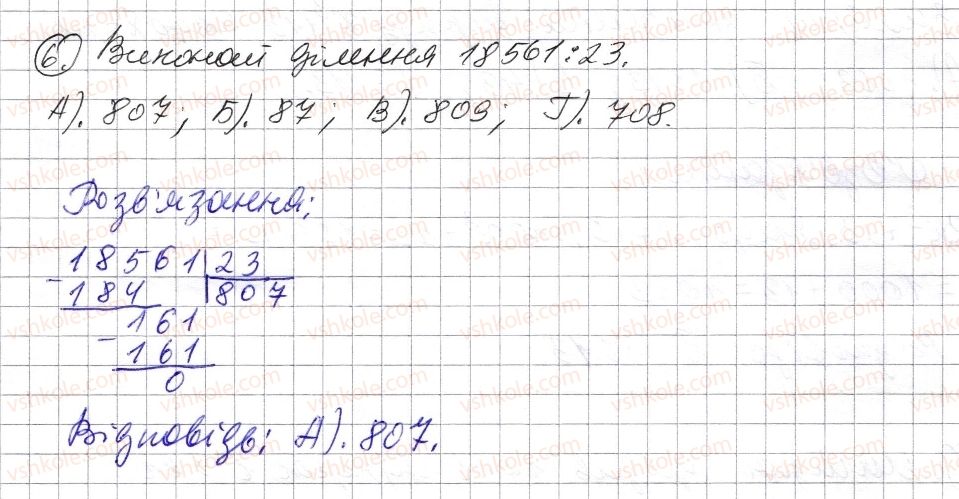 6). Виконай ділення 18561:23.
А). 807; Б). 87; В). 809; Г). 708.
Розв'язання:
18561 23
- 184 807
161
- 161
0
Відповідь: А). 807.